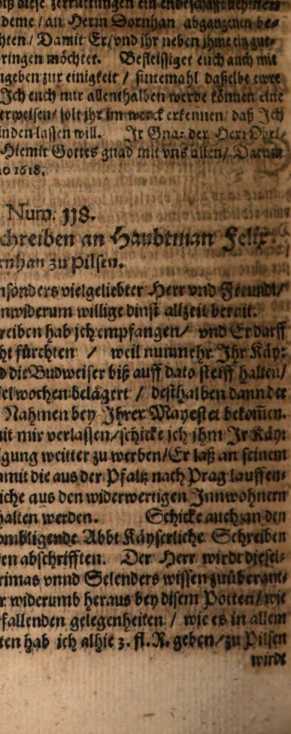 deme / an Herin Sornhan abgangenen be-
hten / Damit Er / vnd ihr neben ihme ein gut-
ringen möchtet. Befleissiget euch auch mit
ngeben zur einigkeit / sintemahl daßelbe ewre
Ich euch nur allenthalben werde können eine
erweisen / solt ihr im werck erkennen / daß Ich
inden lassen will. Ir Gna: der Herr
Hiemit Gottes gnad mit vns allen /
no 1618.
Num. 118.
chreiben an Haubtman Felix
rnhan zu Pilsen.
nsonders vielgeliebter Herr vnd Freundt /
nwiderum willige dinst allzeit bereit.
reiben hab ich empfangen / vnd Er darff
ht fürchten / weil nunmehr Ihr Käy:
d die Budweiser biß auff dato steiff halten /
elwochen belägert / desthalben dann der
Nahmen bey Ihrer Mayestet bekomen.
it mir verlassen / schicke ich ihm Ir Käy:
gung weitter zu werben / Er laß an seinem
amit die aus der Pfaltz nach Prag lauffen-
iche aus den widerwertigen Innwohnern
halten werden. Schicke auch an den
ombligende Abbt Käyserliche Schreiben
en abschrifften. Der Herr wirdt diesel-
rimas vnnd Selenders wissen zuüberant-
r widerumb heraus bey disem Potten / wie
fallenden gelegenheiten / wie es in allem
ten hab ich alhie 3. fl. R. geben / zu Pilsen
wirdt